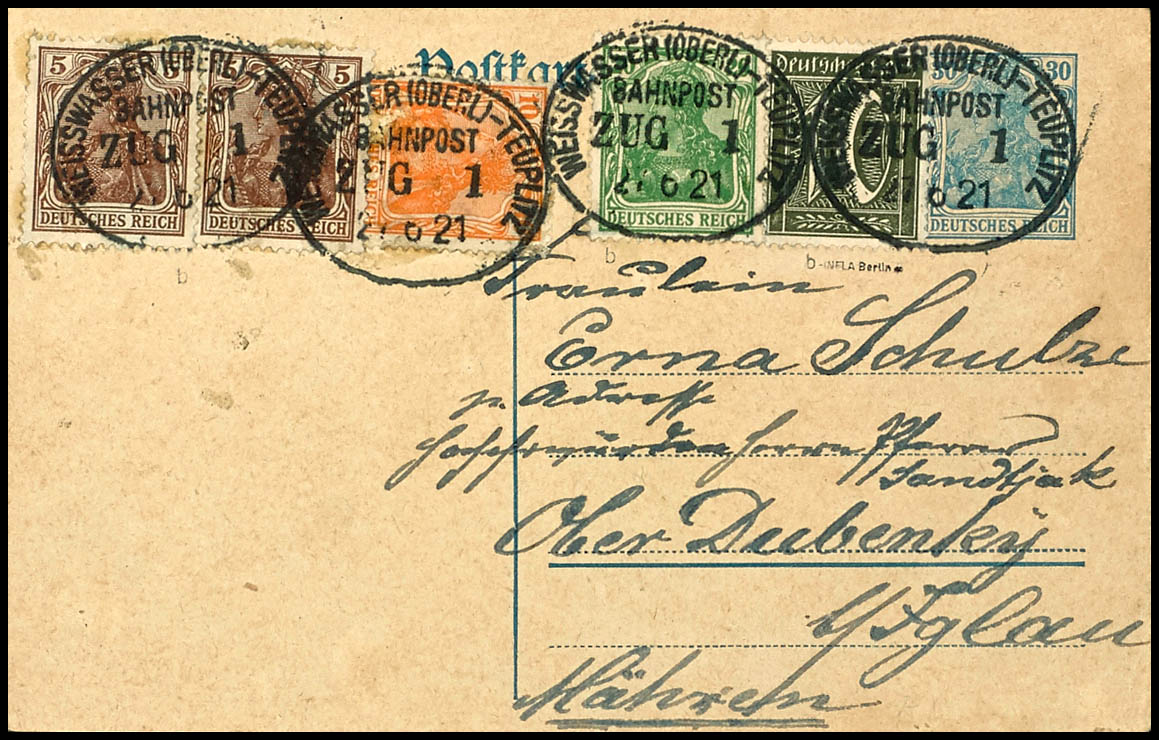 Postkarte
5 5
DEUTSCHES REICH
5
DEUTSCHES REICH
10
DEUTSCHES REICH
DEUTSCHES REICH
Deutsches
30 30
DEUTSCHES REICH
WEISSWASSER (OBERL)-TEUPLITZ
BAHNPOST
ZUG 1
27 6 21
WEISSWASSER (OBERL)-TEUPLITZ
BAHNPOST
ZUG 1
27 6 21
WEISSWASSER (OBERL)-TEUPLITZ
BAHNPOST
ZUG 1
27 6 21
WEISSWASSER (OBERL)-TEUPLITZ
BAHNPOST
ZUG 1
27 6 21
b
b
b -INFLA Berlin
Fräulein
Erna Schulze
p. Adresse
Hochwürden Herrn Pfarrer
Sandtjak
Ober Dubenky
b/ Iglau
Mähren